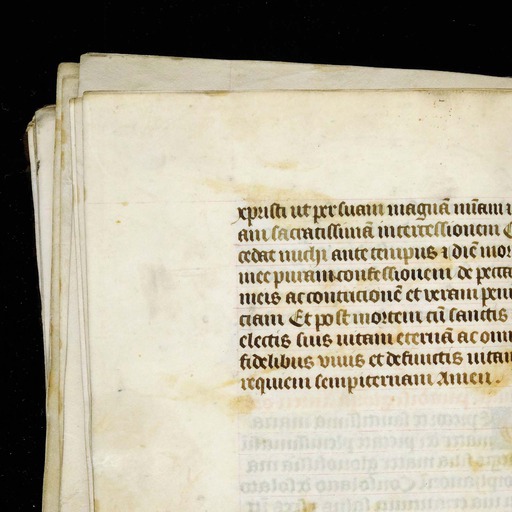 xpristi ut per suam magnā miam
am sacratissimam intercessionem
cedat michi ante tempus ⁊ diē mor
mee puram confessionem de pecca
meis ac contricionē et veram peni
ciam Et post mortem cū sanctis
electis suis uitam eternā ac om
fidelibus viuis et defunctis uitam
requiem sempiternam Amen .